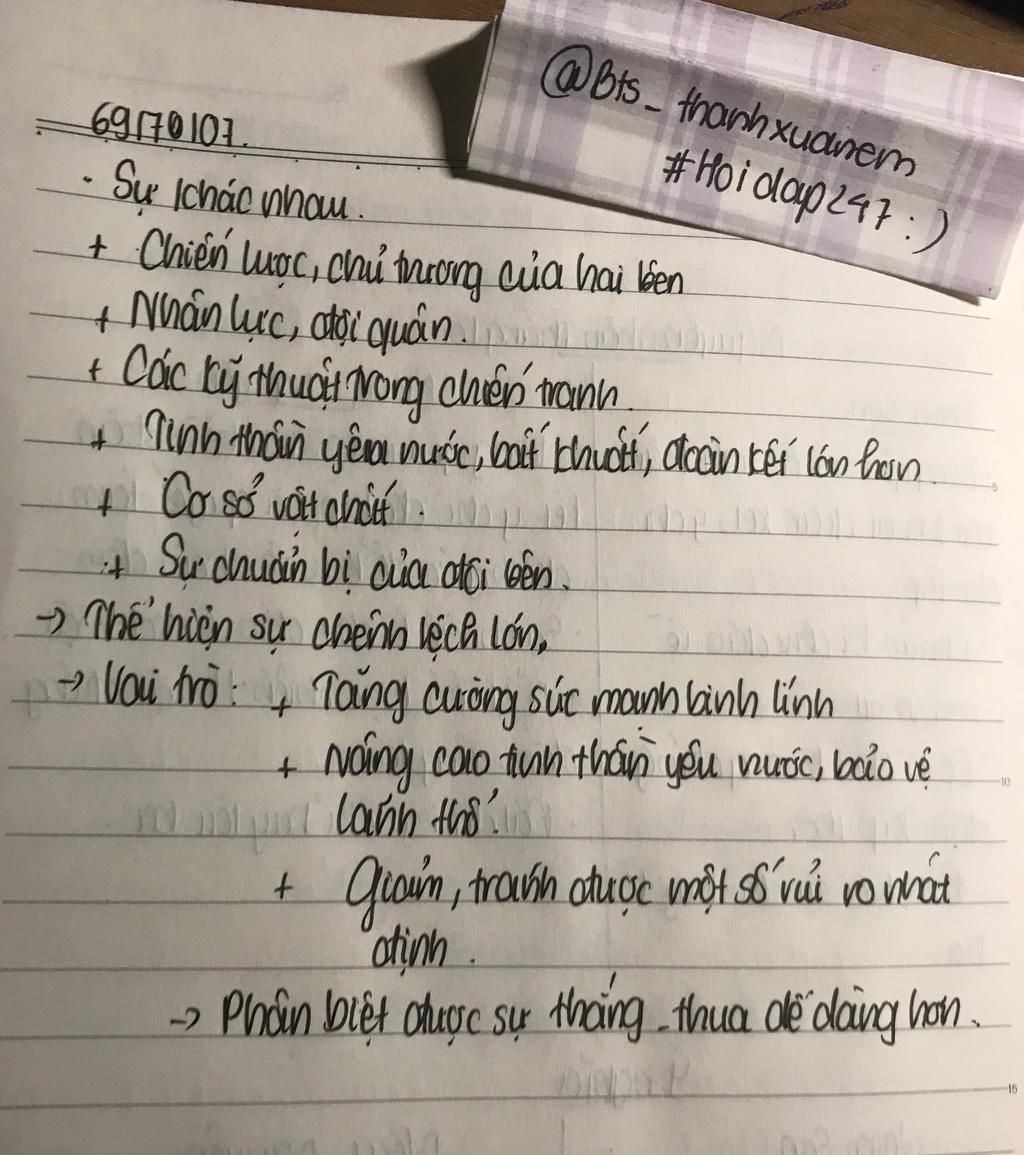 @Bts_thanhxuanem
#Hoidap247:)
69170107.
- Sự khác nhau.
+ Chiến lược, chủ trương của hai bên
+ Nhân lực, đội quân.
+ Các kỹ thuật trong chiến tranh.
+ Tinh thần yêu nước, bất khuất, đoàn kết lớn hơn.
+ Cơ sở vật chất.
+ Sự chuẩn bị của đôi bên.
→ Thể hiện sự chênh lệch lớn,
→ Vai trò: + Tăng cường sức mạnh binh lính
+ Nâng cao tinh thần yêu nước, bảo vệ
lãnh thổ.
+ Giảm, tránh được một số rủi ro nhất
định.
→ Phân biệt được sự thắng - thua dễ dàng hơn.